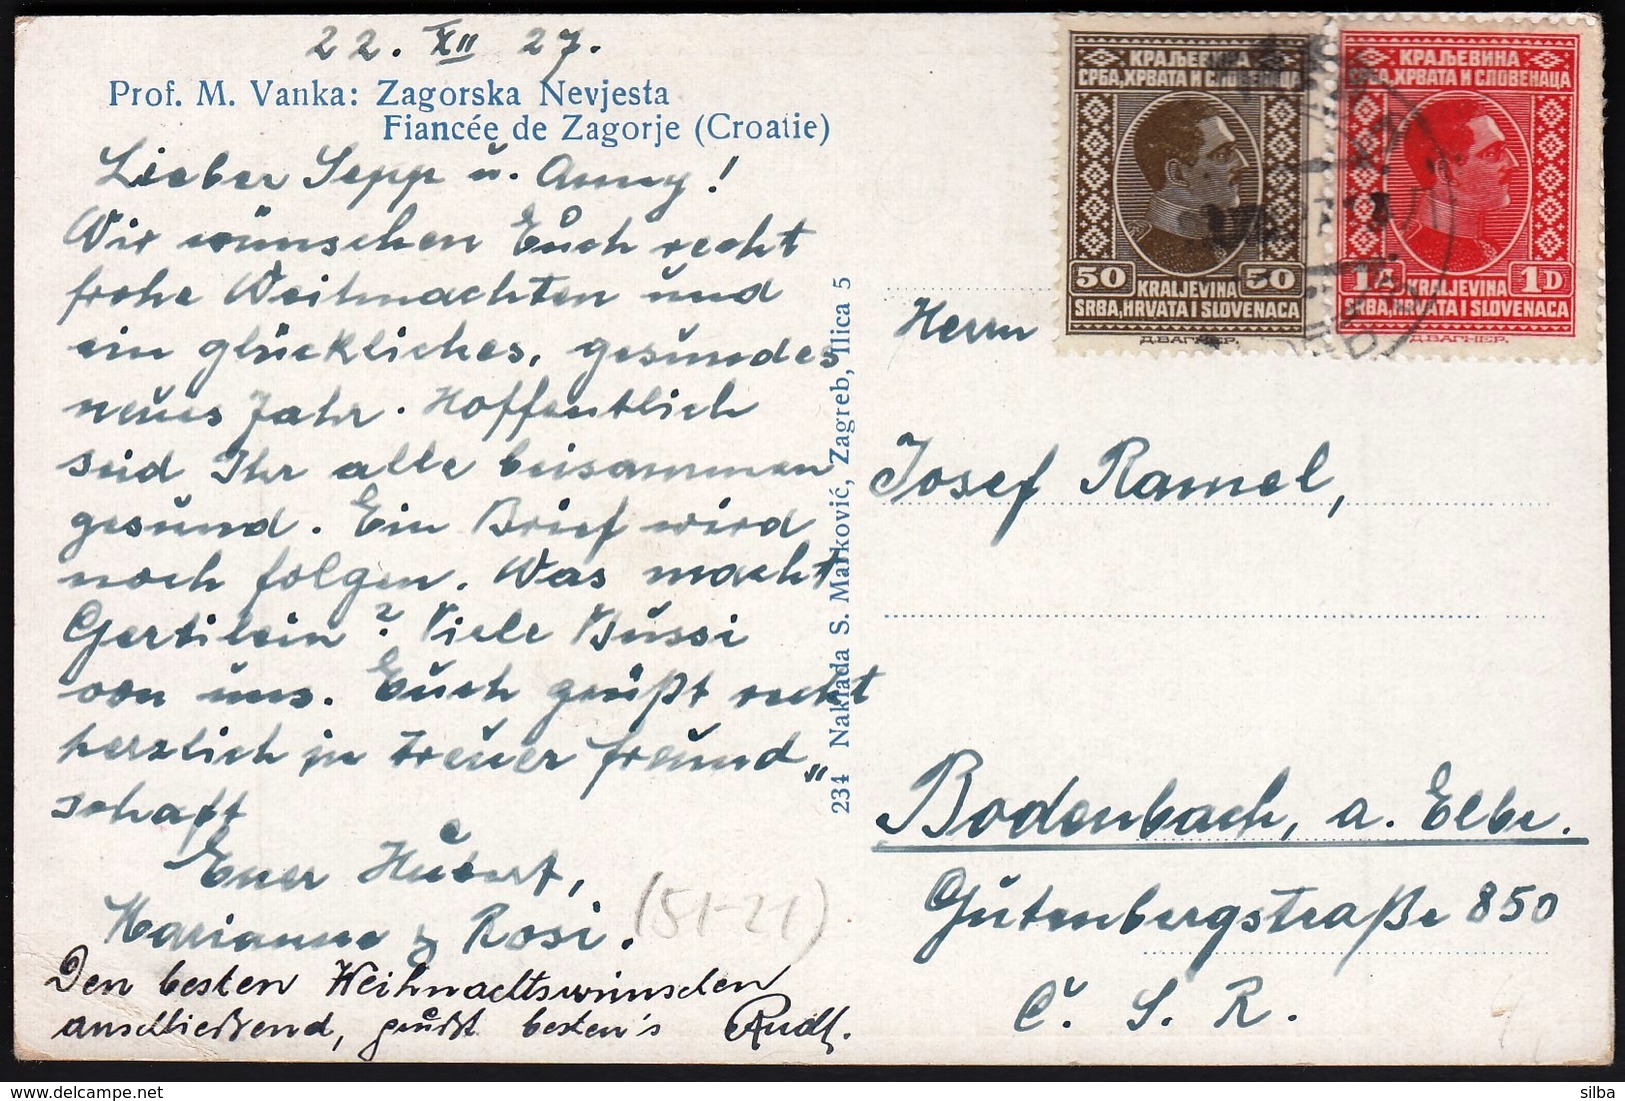 22. XII 27.
Prof. M. Vanka: Zagorska Nevjesta
Fiancée de Zagorje (Croatie)
Lieber Sepp u. Anny!
Wir wünschen Euch recht
frohe Weihnachten und
ein glückliches, gesundes
neues Jahr. Hoffentlich
seid Ihr alle beisammen
gesund. Ein Brief wird
noch folgen. Was macht
Gertilein? Viele Bussi
von uns. Euch grüßt recht
herzlich in treuer Freund„
schaft
Euer Hubert,
Marianne & Rosi.
(51-21)
Den besten Weihnachtswünschen
anschließend, grüßt besten's Rudl.
234 Naklada S. Marković, Zagreb, Ilica 5
КРАЉЕВИНА
СРБА, ХРВАТА И СЛОВЕНАЦА
50 50
KRALJEVINA
SRBA, HRVATA I SLOVENACA
Д.ВАГНЕР.
КРАЉЕВИНА
СРБА, ХРВАТА И СЛОВЕНАЦА
1D
KRALJEVINA
SRBA, HRVATA I SLOVENACA
Д.ВАГНЕР.
Herrn
Josef Ramel,
Bodenbach, a. Elbe.
Gutenbergstraße 850
Č. S. R.
silba